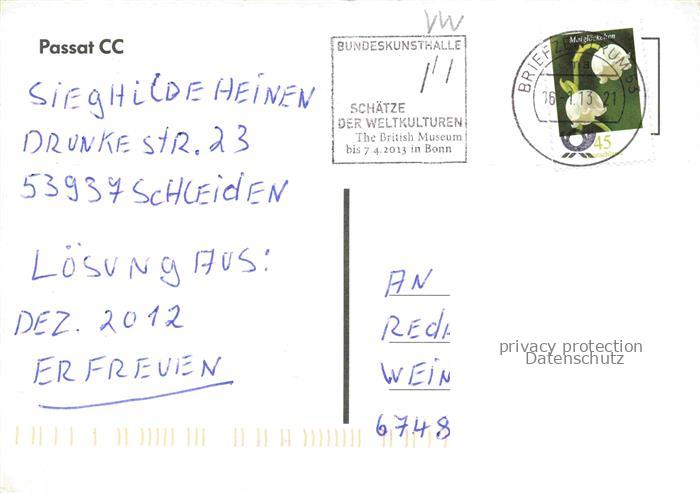 VW
Passat CC
BUNDESKUNSTHALLE
SCHÄTZE
DER WELTKULTUREN
The British Museum
bis 7.4.2013 in Bonn
Maiglöckchen
BRIEFZENTRUM 53
16.-1.13 21
45
SIEGHILDE HEINEN
DRUNKE STR. 23
53937 SCHLEIDEN
LÖSUNG AUS:
DEZ. 2012
ERFREUEN
AN
REDA
WEIN
6748
privacy protection
Datenschutz